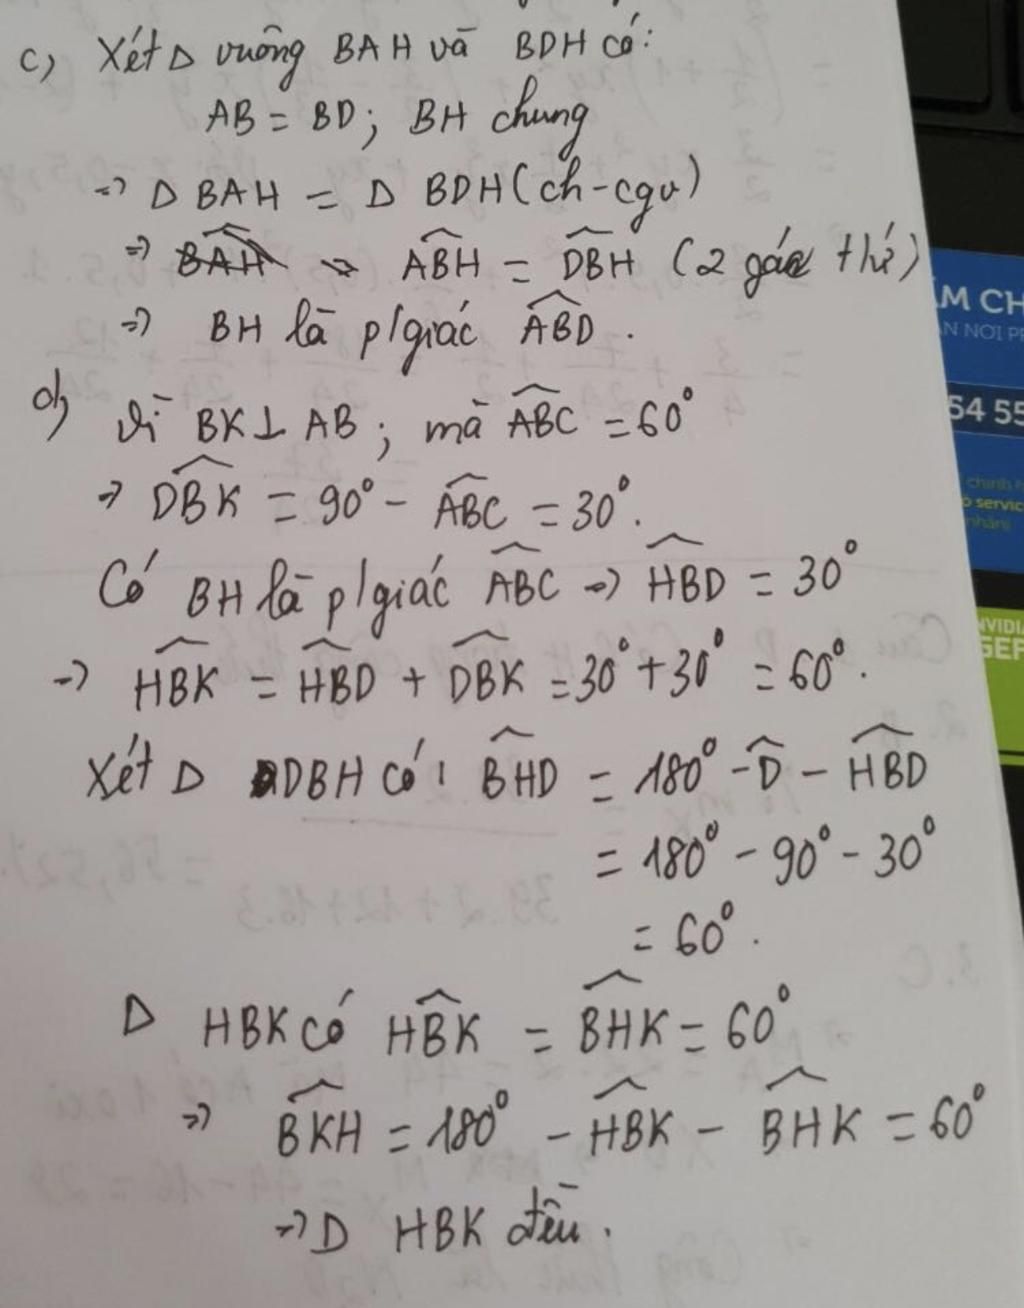 c) Xét Δ vuông BAH và BDH có:
AB = BD; BH chung
=> Δ BAH = Δ BDH (ch-cgv)
=> BAH => ABH = DBH (2 góc t/ứ)
=> BH là p/giác ABD.
d) Vì BK⊥AB; mà ABC = 60°
=> DBK = 90° - ABC = 30°.
Có BH là p/giác ABC => HBD = 30°
=> HBK = HBD + DBK = 30° + 30° = 60°.
Xét Δ DBH có: BHD = 180° - D - HBD
= 180° - 90° - 30°
= 60°.
Δ HBK có HBK = BHK = 60°
=> BKH = 180° - HBK - BHK = 60°
=> Δ HBK đều.
M CH
N NOI P
54 55
service
NVIDIA